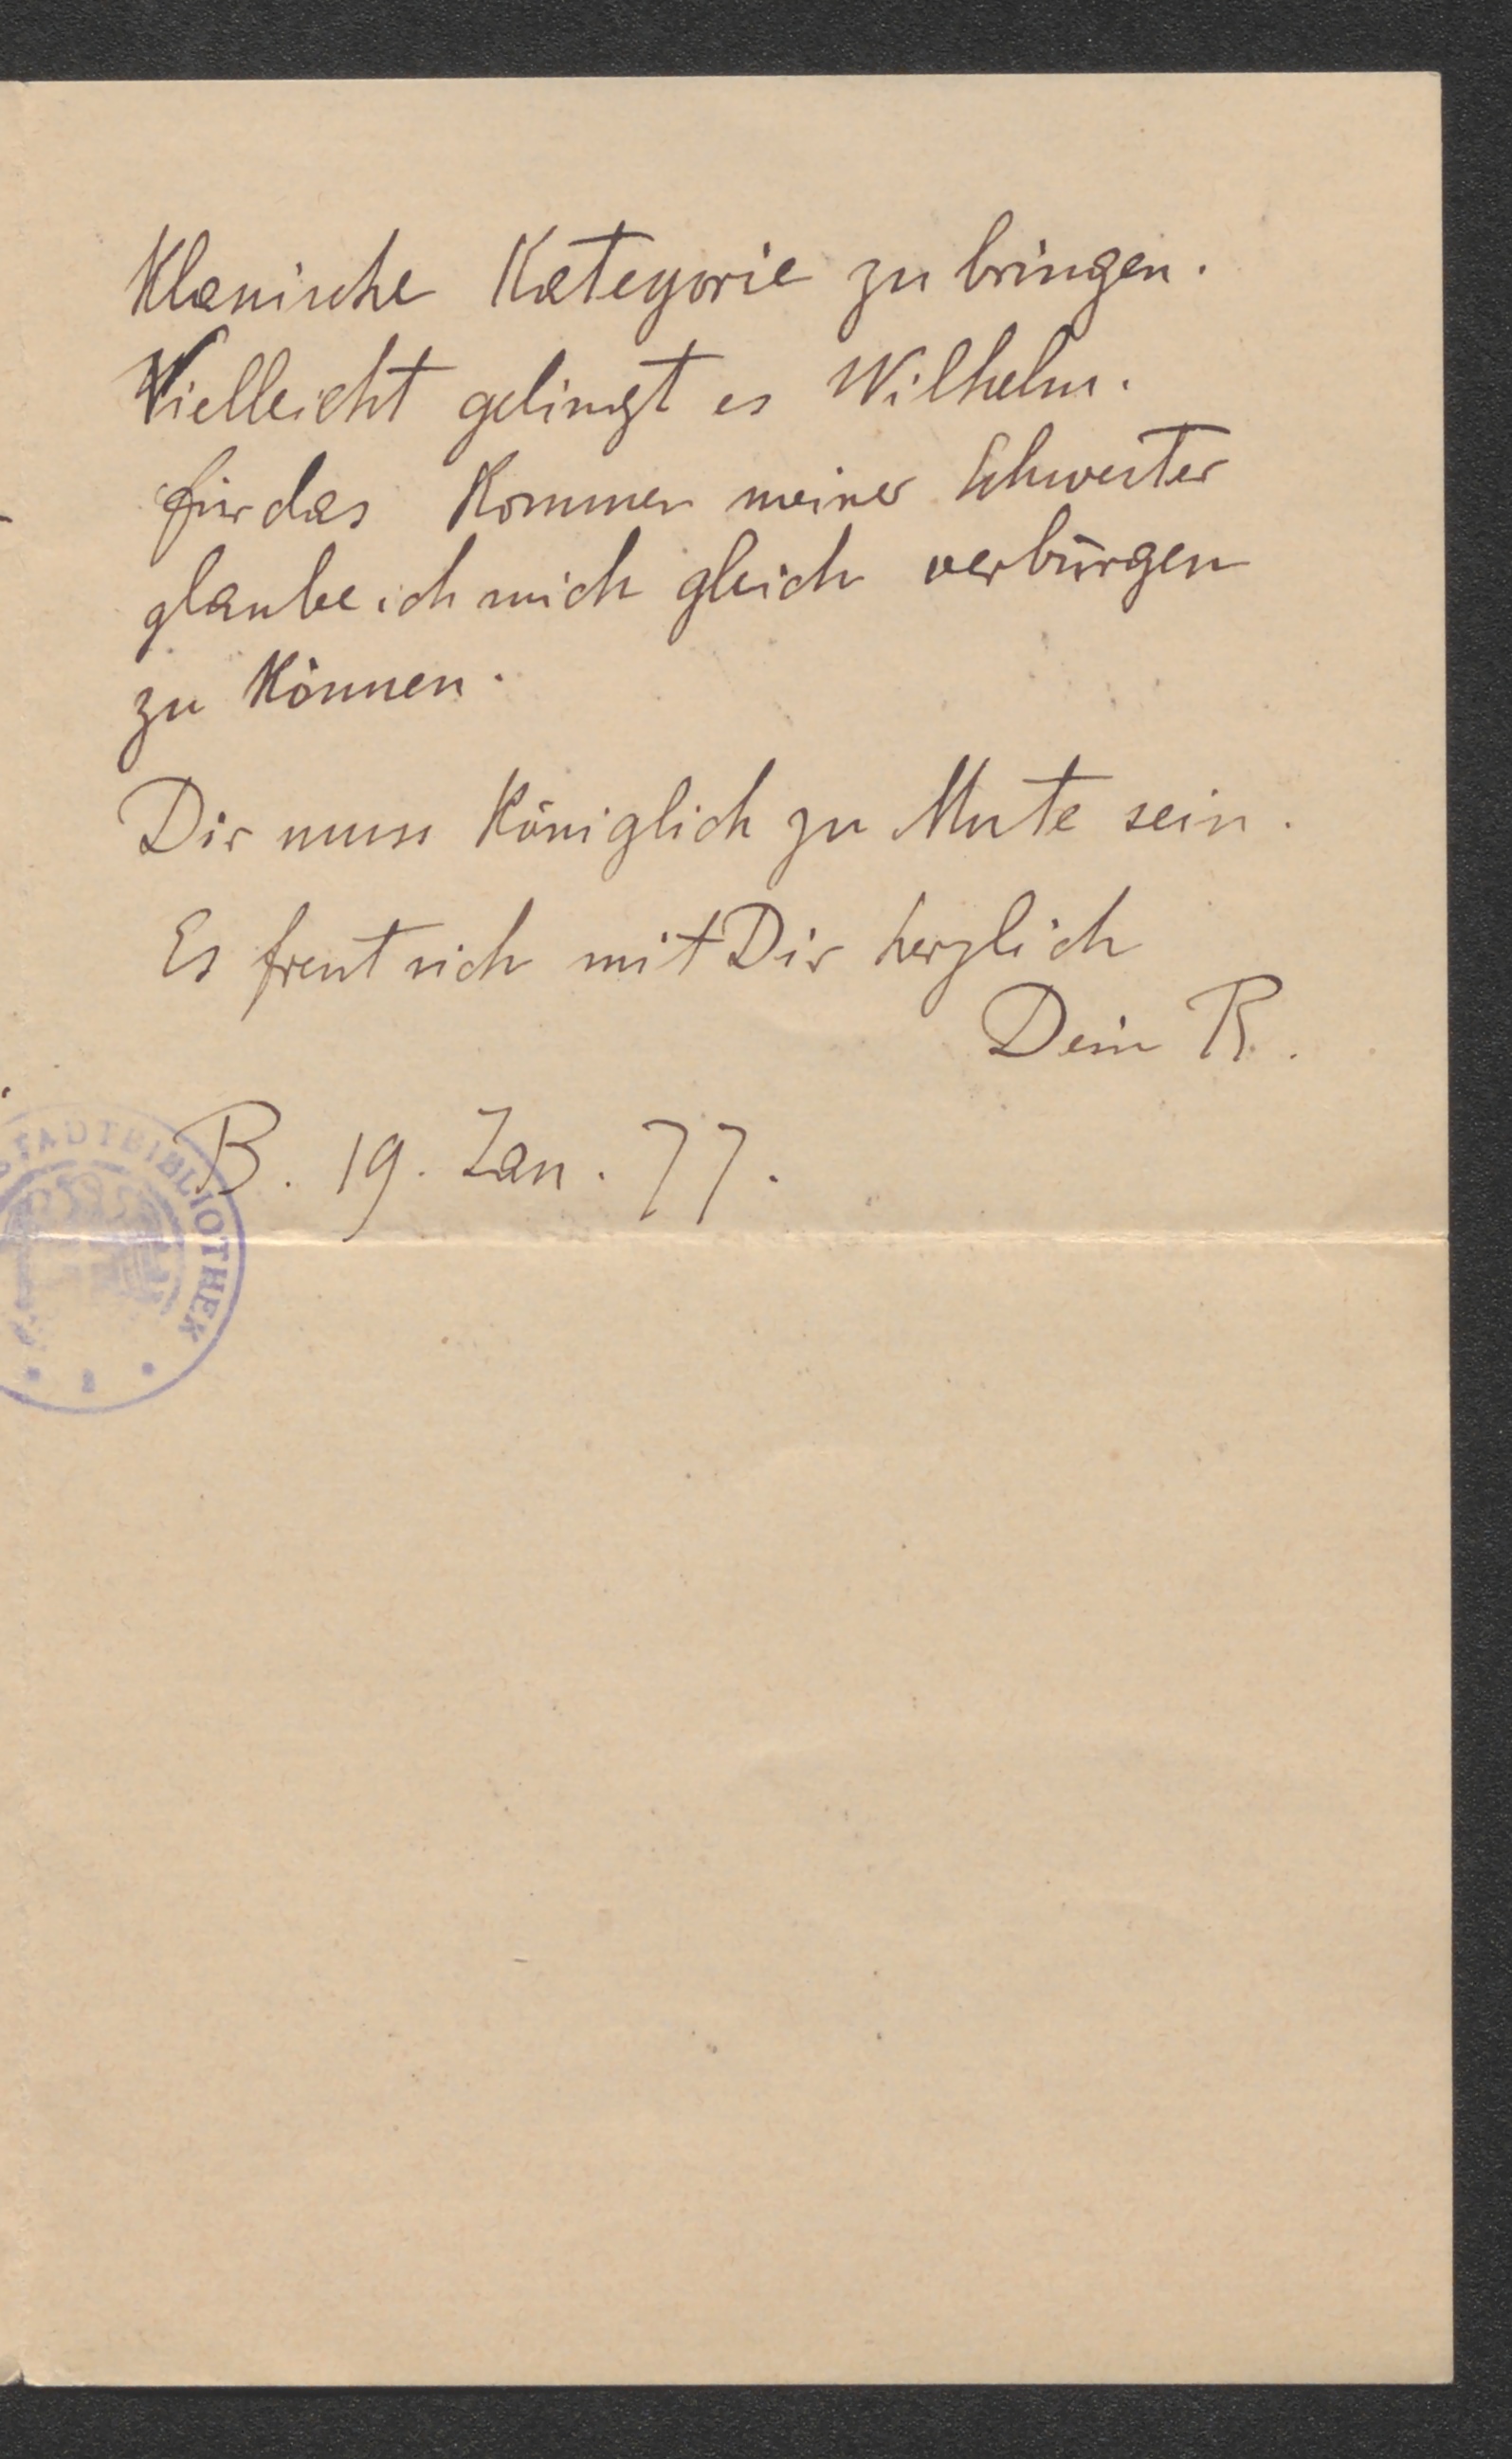 Klanische Kategorie zu bringen.
Vielleicht gelingt es Wilhelm.
für das Kommen meiner Schwester
glaube ich mich gleich verbürgen
zu können.
Dir muss königlich zu Mute sein.
Es freut sich mit Dir herzlich
Dein R.
B. 19. Jan. 77.
STADTBIBLIOTHEK